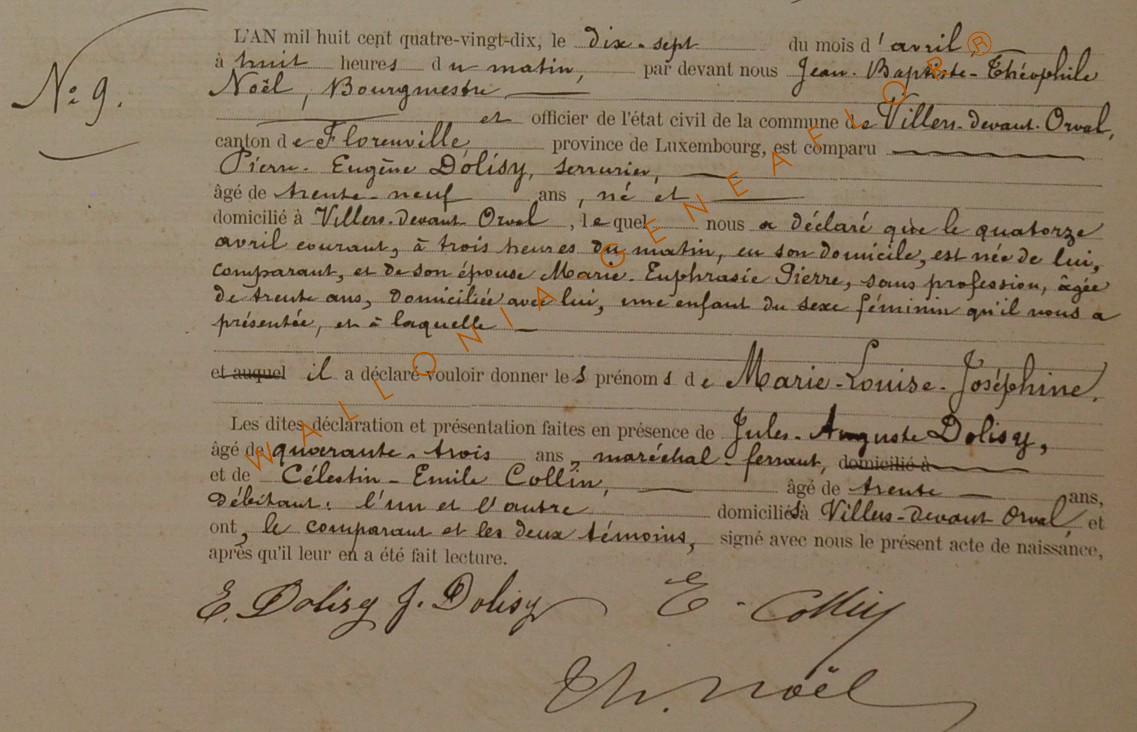 L'AN mil huit cent quatre-vingt-dix, le dix-sept du mois d'avril
N° 9.
à huit heures du matin, par devant nous Jean-Baptiste-Théophile
Noël, Bourgmestre
et officier de l'état civil de la commune de Villers-devant-Orval,
canton de Florenville, province de Luxembourg, est comparu
Pierre-Eugène Dolisy, serrurier,
âgé de trente-neuf ans, né et
domicilié à Villers-devant Orval, lequel nous a déclaré que le quatorze
avril courant, à trois heures du matin, en son domicile, est née de lui,
comparant, et de son épouse Marie-Euphrasie Pierre, sans profession, âgée
de trente ans, domiciliée avec lui, une enfant du sexe féminin qu'il nous a
présentée, et à laquelle
et auquel il a déclaré vouloir donner les prénoms de Marie-Louise-Joséphine.
Les dites déclaration et présentation faites en présence de Jules-Auguste Dolisy,
âgé de quarante-trois ans, maréchal-ferrant, domicilié à
et de Célestin-Emile Collin, âgé de trente ans,
Débitant; l'un et l'autre domiciliés à Villers-devant Orval, et
ont, le comparant et les deux témoins, signé avec nous le présent acte de naissance,
après qu'il leur en a été fait lecture.
E. Dolisy J. Dolisy E. Collin
Th. Noël
WALLONIA GENEAFLOR ®